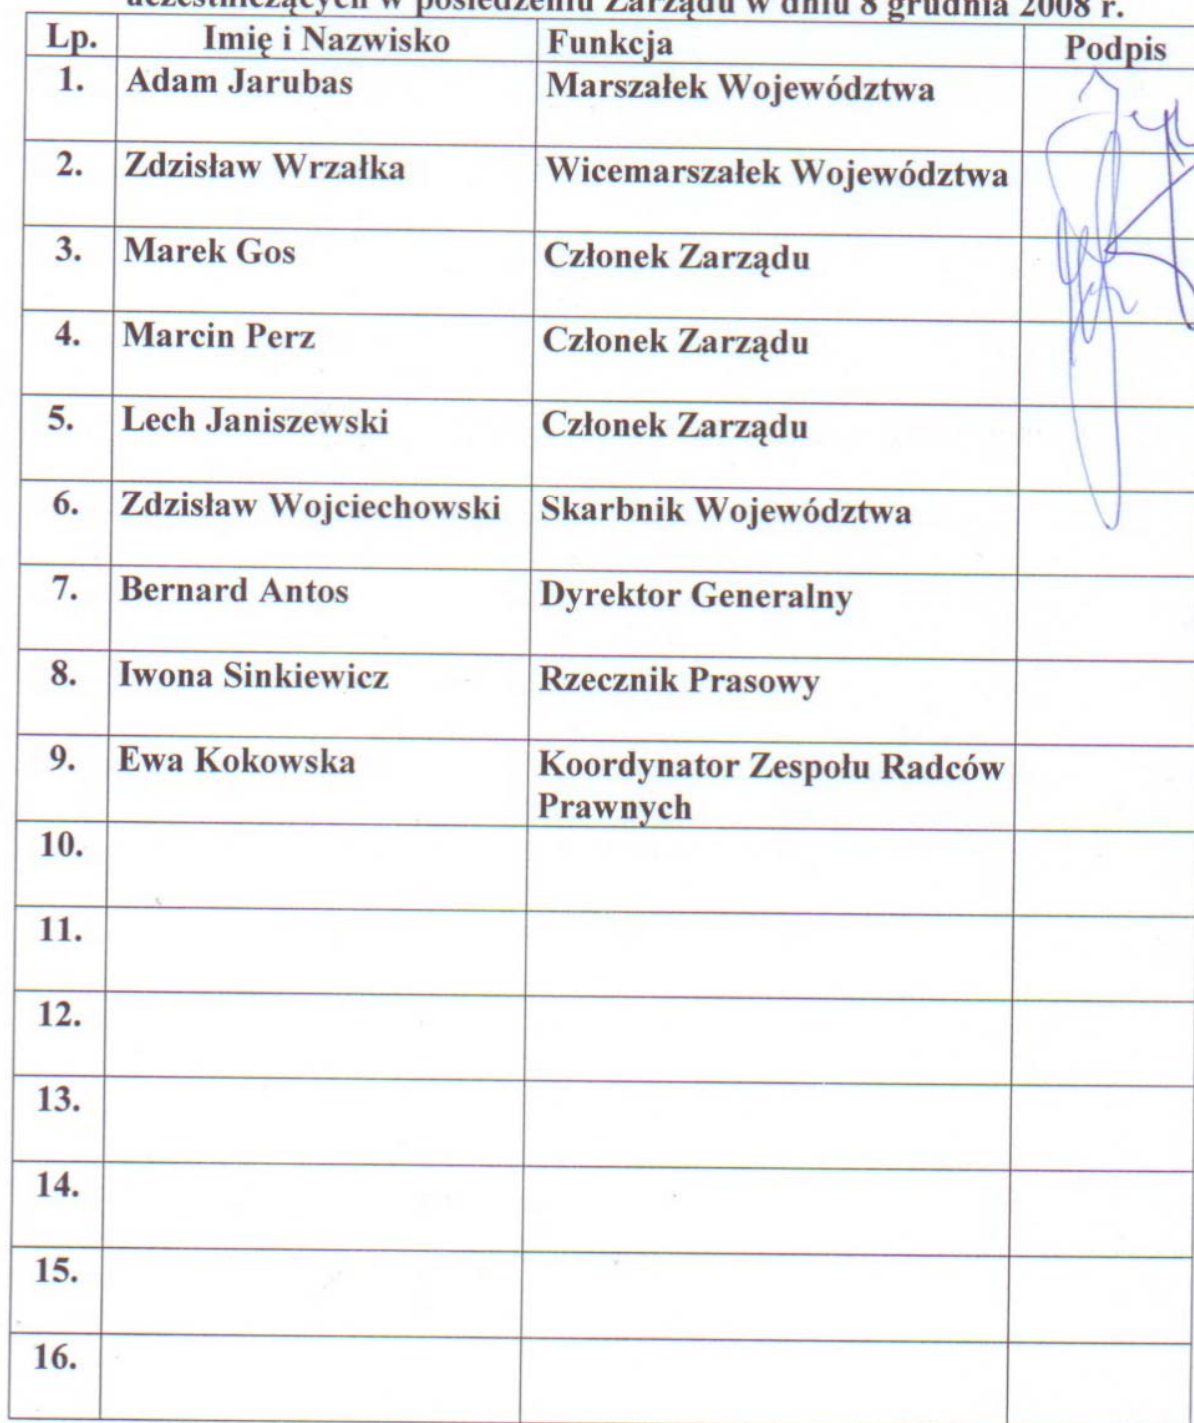 uczestniczących w posiedzeniu Zarządu w dniu 8 grudnia 2008 r.
Lp. Imię i Nazwisko Funkcja Podpis
1. Adam Jarubas Marszałek Województwa
2. Zdzisław Wrzałka Wicemarszałek Województwa
3. Marek Gos Członek Zarządu
4. Marcin Perz Członek Zarządu
5. Lech Janiszewski Członek Zarządu
6. Zdzisław Wojciechowski Skarbnik Województwa
7. Bernard Antos Dyrektor Generalny
8. Iwona Sinkiewicz Rzecznik Prasowy
9. Ewa Kokowska Koordynator Zespołu Radców
Prawnych
10.
11.
12.
13.
14.
15.
16.